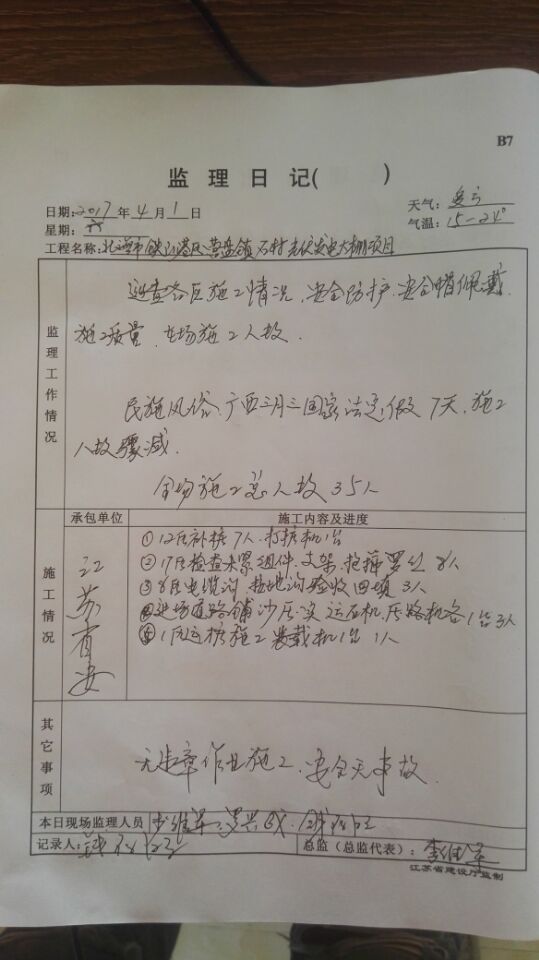 B7
监理日记( )
日期:2017年4月1日 天气:多云
星期:六 气温:15-24°
工程名称:北海市铁山港区营盘镇石村光伏发电大棚项目
监理工作情况
巡查各区施工情况,安全防护.安全帽佩戴.
施工质量.在场施工人数.
民族风俗.广西三月三国家法定假7天.施工
人数骤减.
全场施工总人数35人
承包单位 施工内容及进度
施工情况
江苏有安
①12区补桩7人.打桩机1台
②17区检查未紧组件.支架.抱箍螺丝8人
③8区电缆沟.接地沟验收回填3人
④进场道路铺沙压实 运石机.压路机各1台3人
⑤1区运桩施工装载机1台1人
其它事项
无违章作业施工.安全无事故.
本日现场监理人员
记录人: 总监(总监代表):
江苏省建设厅监制